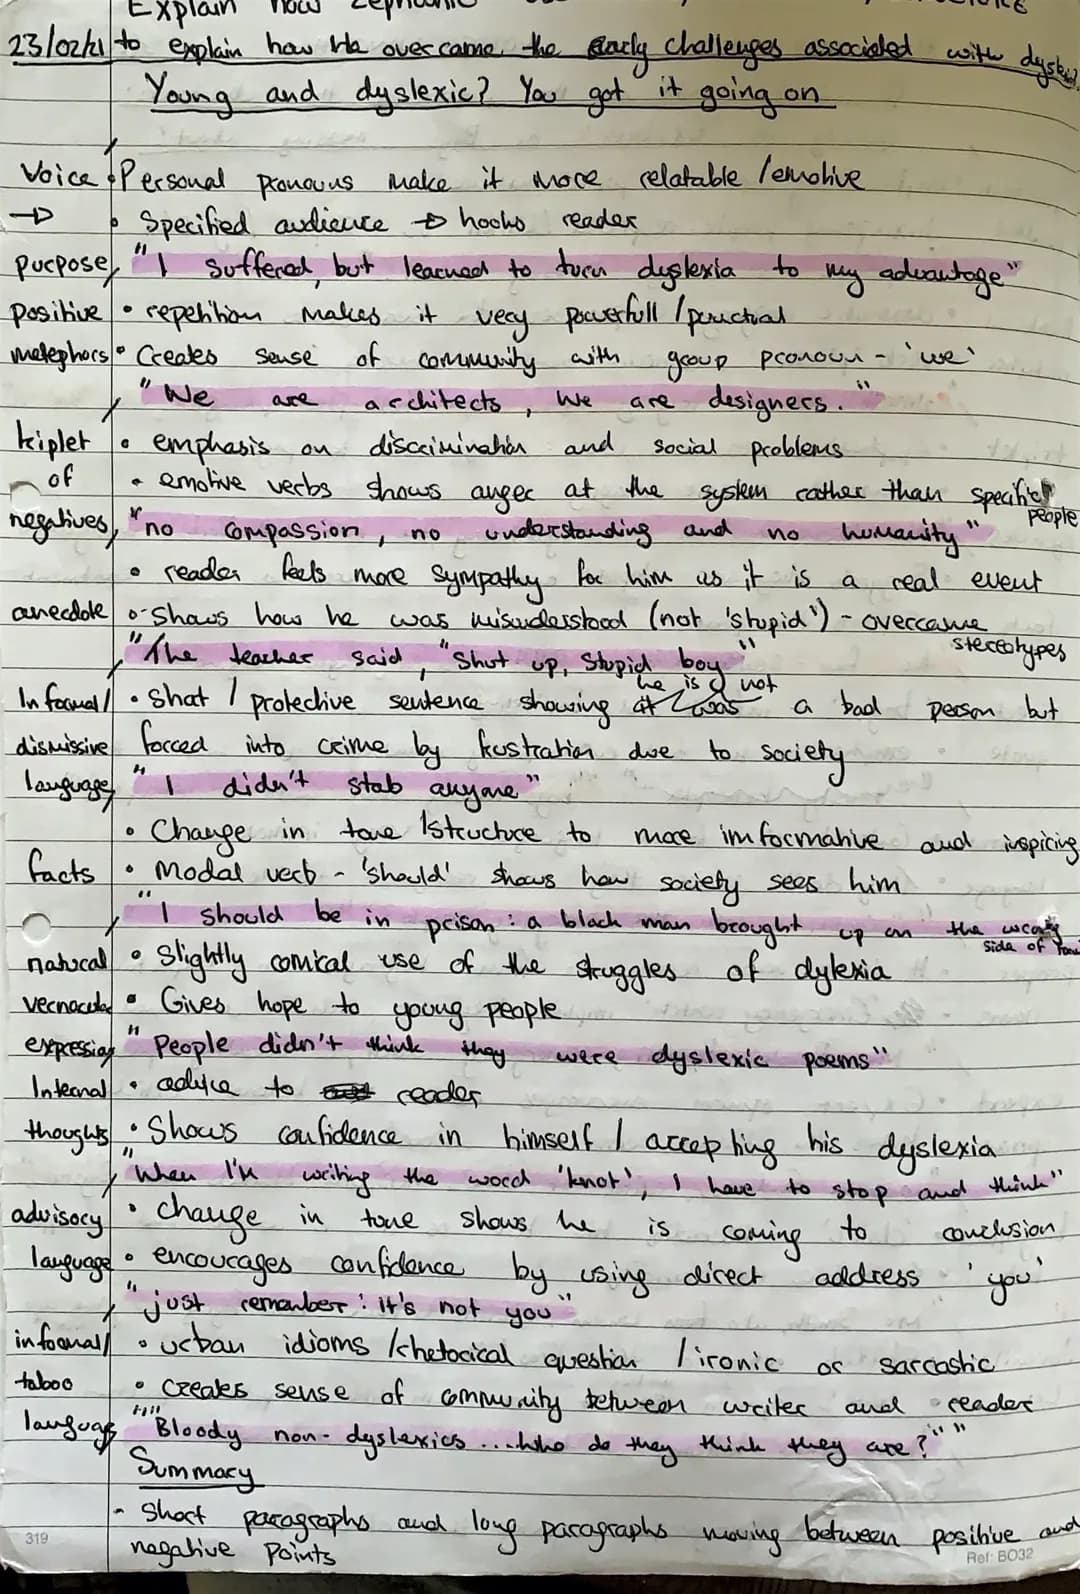 Explain how Zephanie
23/02/21 to explain how he overcame the early challenges associated with
Young and dyslexic? You got it going on
Voice • Personal pronouns make it more relatable / emotive
→ • Specified audience → hooks reader
purpose, "I suffered, but learned to turn dyslexia to my advantage"
positive • repetition makes it very powerfull / punctual
metephors • Creates sense of community with group pronoun - 'we'
"We are architects, we are designers."
triplet • emphasis on discrimination and social problems
of • emotive verbs shows anger at the system rather than specific people
negatives, "no compassion, no understanding and no humanity"
• reader feels more sympathy for him as it is a real event
anecdote • Shows how he was misunderstood (not 'stupid') - overcame stereotypes
"The teacher said, "Shut up, Stupid boy"
he is not
Informal / • Short / protective sentence showing it was a bad person but
dismissive forced into crime by frustration due to society
language, "I didn't stab anyone"
• Change in tone / structure to more imformative and inspiring
facts • Modal verb - 'should' shows how society sees him
"I should be in prison: a black man brought up on the wrong side of
natural • Slightly comical use of the struggles of dylexia
vernacular • Gives hope to young people
expression "People didn't think they were dyslexic poems"
Internal • advice to reader
thoughts • Shows confidence in himself / accepting his dyslexia
"When I'm writing the word 'knot', I have to stop and think"
advisory • change in tone shows he is coming to conclusion
language • encourages confidence by using direct address 'you'
"just remember: it's not you"
informal / • urban idioms / rhetorical question / ironic or sarcastic
taboo • creates sense of community between writer and reader
language "Bloody non-dyslexics ... who do they think they are?""
Summary
- Short paragraphs and long paragraphs moving between positive and
negative points
319
Ref: BO32